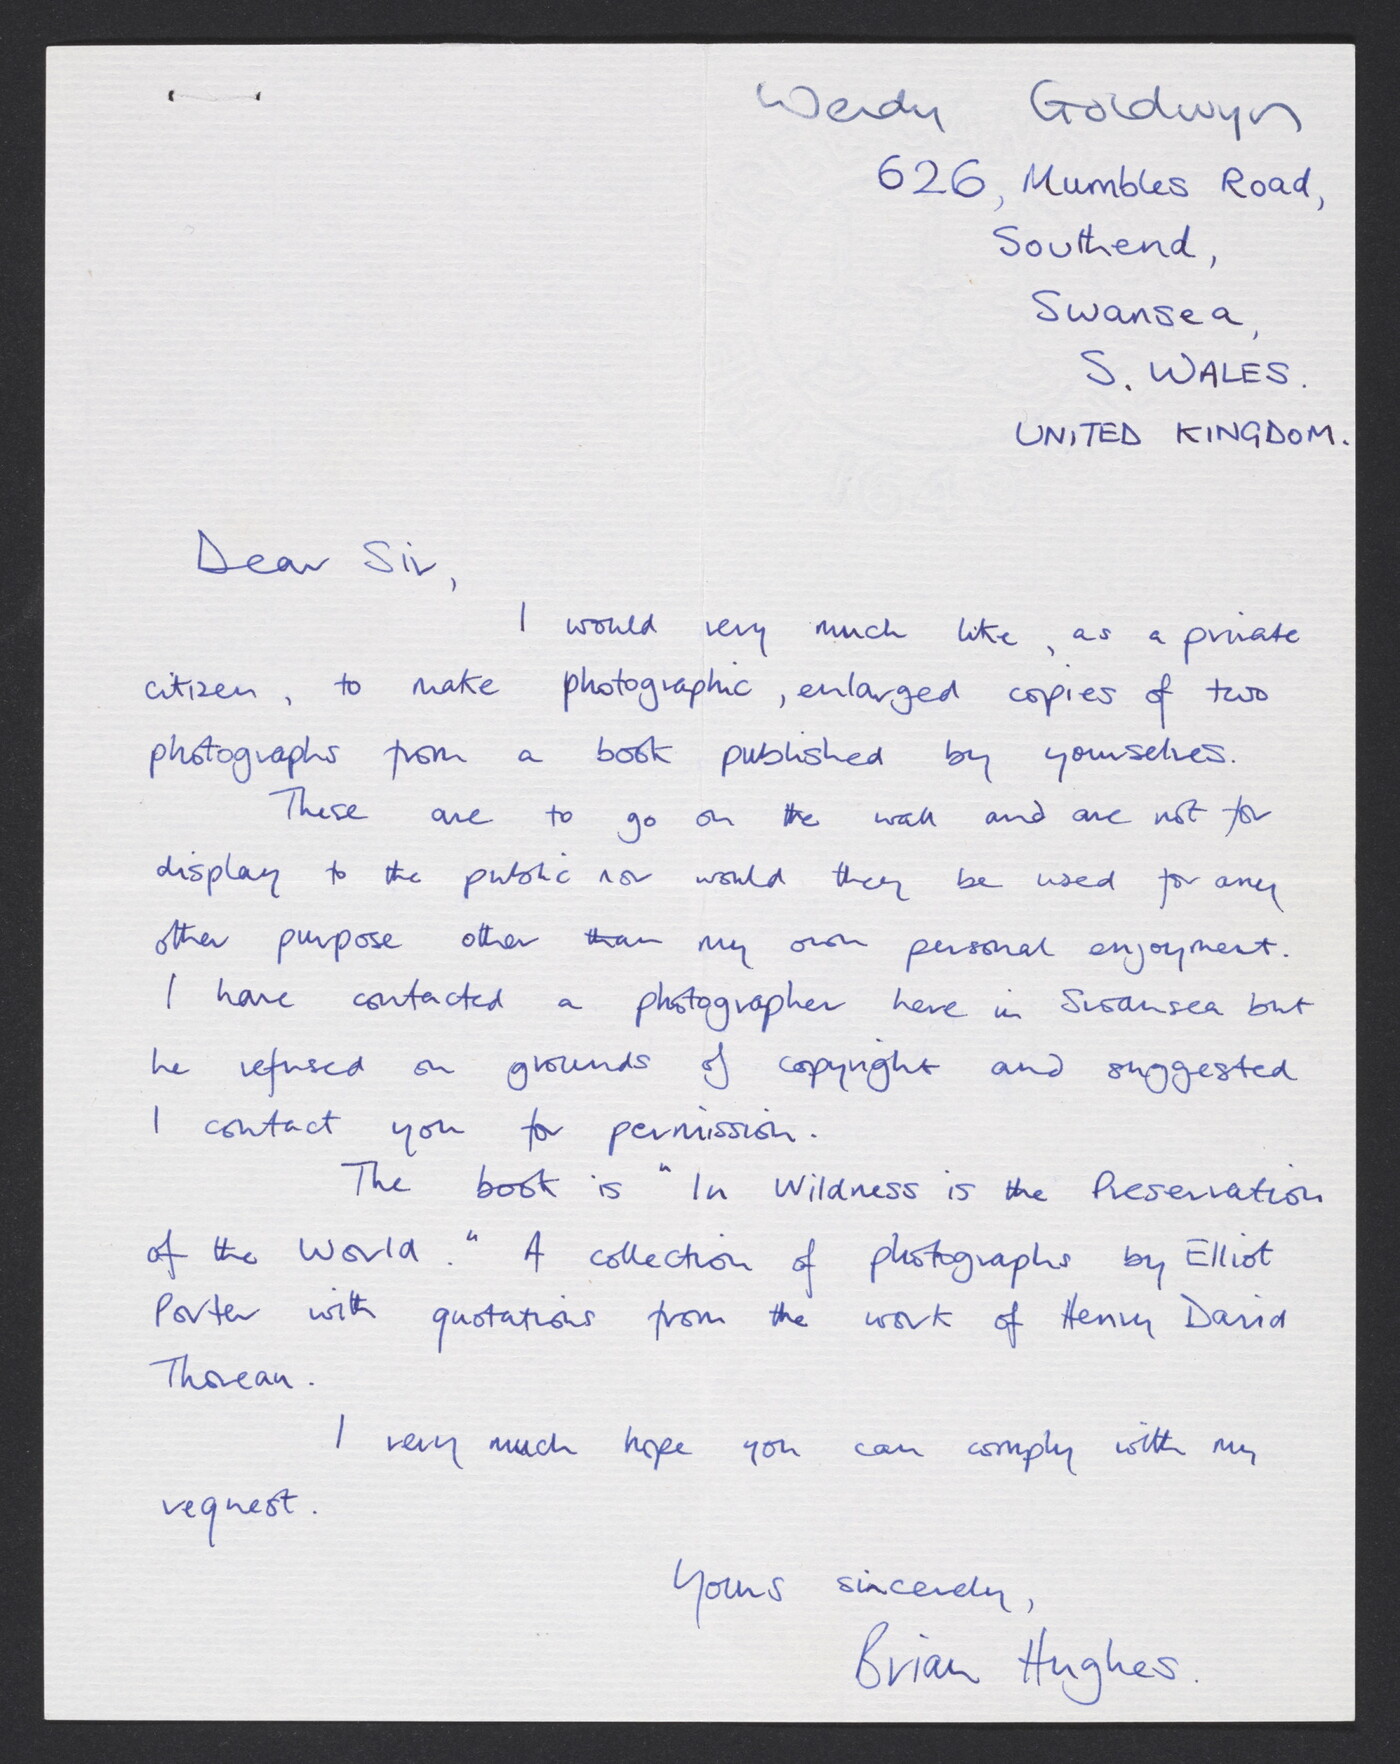 Wendy Goldwyn
626, Mumbles Road,
Southend,
Swansea,
S. WALES.
UNITED KINGDOM.
Dear Sir,
I would very much like, as a private
citizen, to make photographic, enlarged copies of two
photographs from a book published by yourselves.
These are to go on the wall and are not for
display to the public nor would they be used for any
other purpose other than my own personal enjoyment.
I have contacted a photographer here in Swansea but
he refused on grounds of copyright and suggested
I contact you for permission.
The book is "In Wildness is the Preservation
of the World." A collection of photographs by Elliot
Porter with quotations from the work of Henry David
Thoreau.
I very much hope you can comply with my
request.
Yours sincerely,
Brian Hughes.